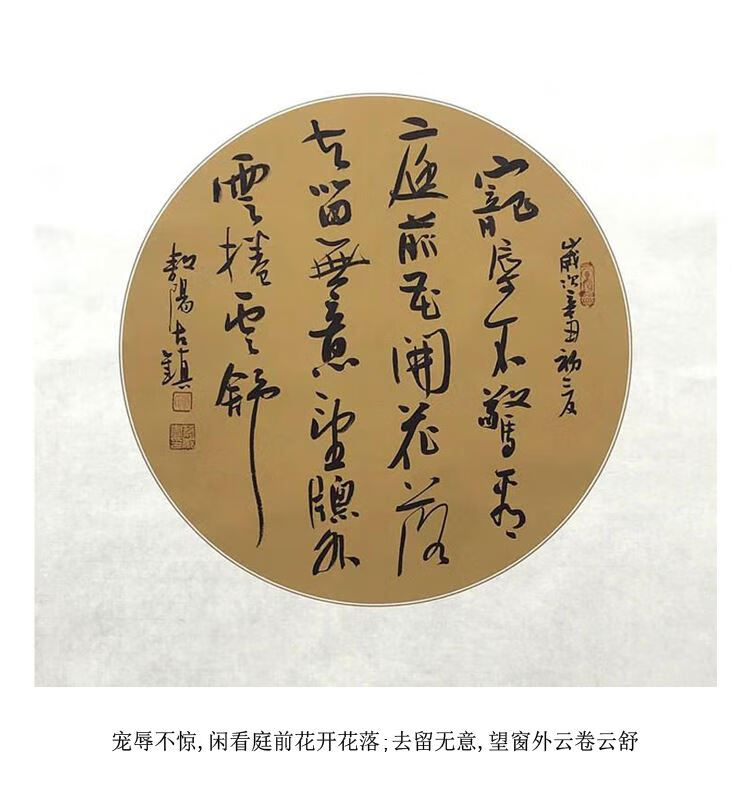 歲次辛丑初夏
寵辱不驚看
庭前花開花落
去留無意望牕外
雲捲雲舒
陽古鎮
宠辱不惊,闲看庭前花开花落;去留无意,望窗外云卷云舒